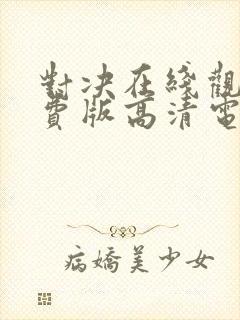 對决在綫觀
費版高清電
病嬌美少女